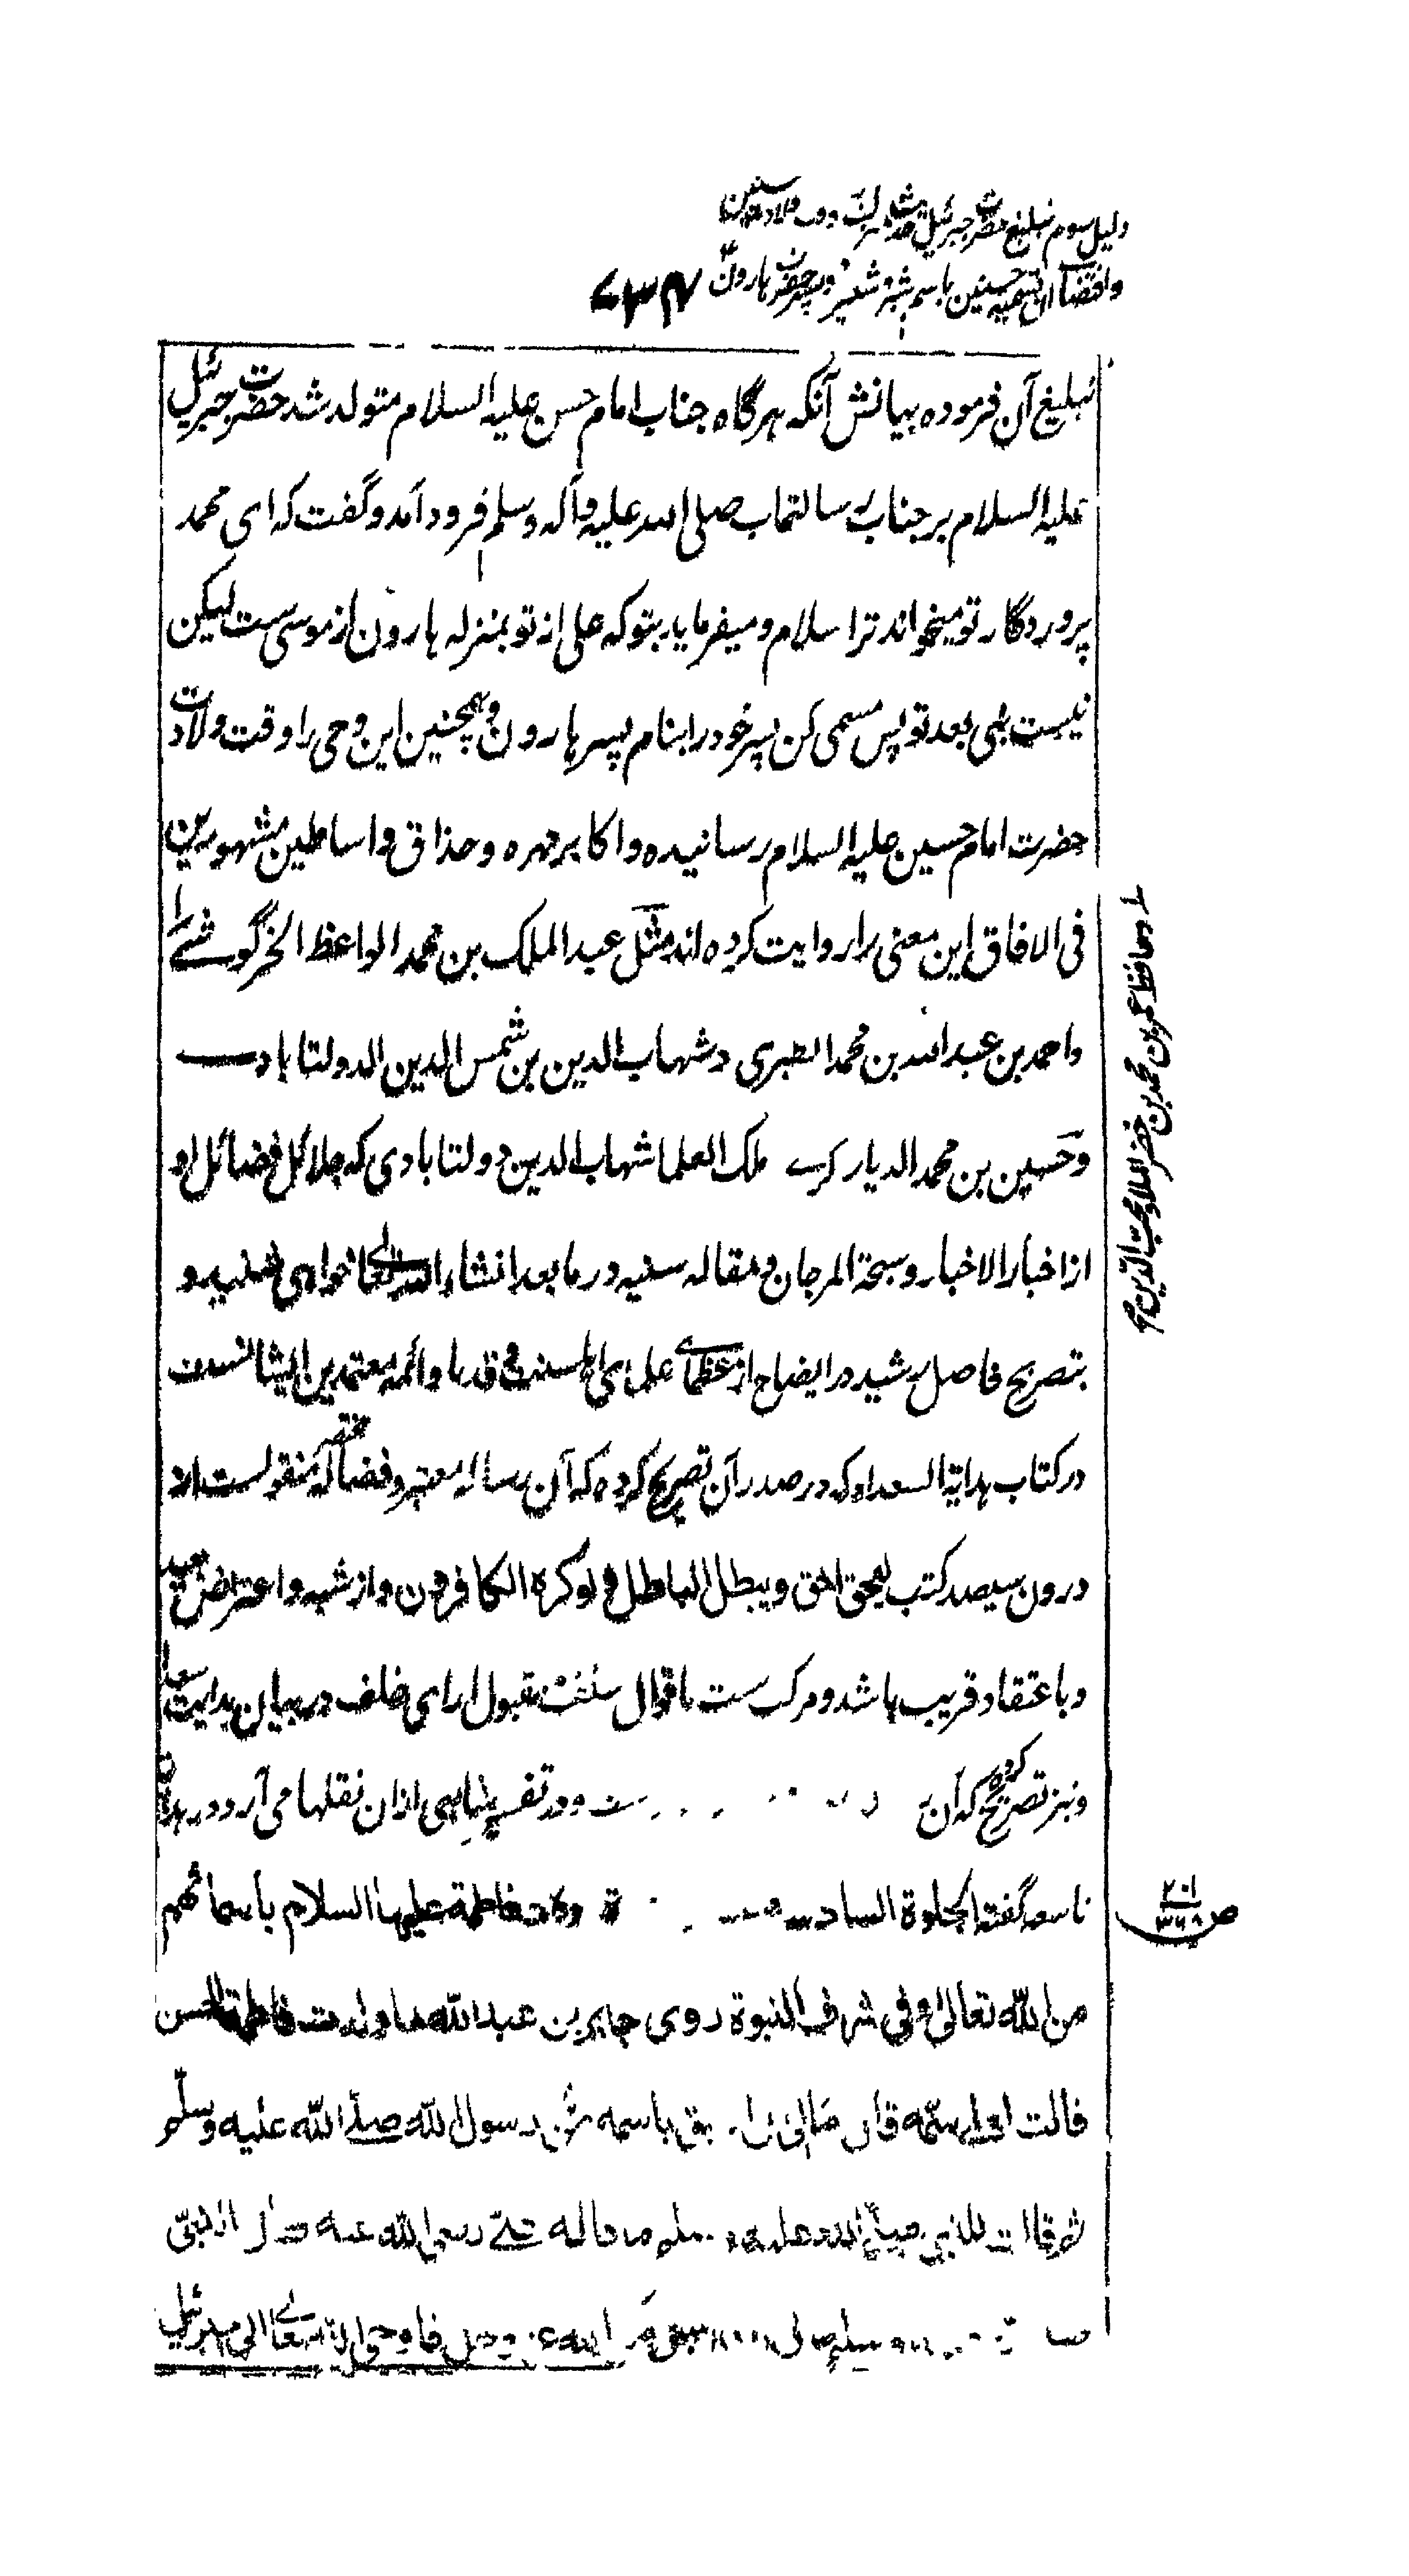 دلیل سوم تبلیغ حضرت جبرئیل حدیث منزلت را وقت ولادت حسنین
واقتضای آن تسمیه حسنین باسم شبر و شبیر دو پسر حضرت هارون ۷۳۴
تبلیغ آن فرموده بیانش آنکه هرگاه جناب امام حسن علیه السلام متولد شد حضرت جبرئیل
علیه السلام بر جناب رسالتماب صلی الله علیه وآله وسلم فرود آمد و گفت که ای محمد
پروردگار تو میخواند ترا سلام و میفرماید بتو که علی از تو بمنزله هارون از موسی ست لیکن
نیست نبی بعد تو پس مسمی کن پسر خود را بنام پسر هارون و همچنین این وحی را وقت ولادت
حضرت امام حسین علیه السلام رسانیده و اکابر مهره و حذاق و اساطین مشهورین
فی الافاق این معنی را روایت کرده اند مثل عبد الملک بن محمد الواعظ الخرگوشے
واحمد بن عبد الله بن محمد الطبری و شهاب الدین بن شمس الدین الدولتابادے
وحسین بن محمد الدیاربکرے ملک العلما شهاب الدین دولتابادی که جلائل فضائل او
از اخبار الاخیار و سبحة المرجان و مقاله سنیه در ما بعد انشاء الله تعالی خواهی شنید و
بتصریح فاضل رشید در ایضاح از عظمای علمای اهلسنت و قدما و ائمه معتمدین ایشانست
در کتاب هدایة السعداء که در صدر آن تصریح کرده که آن رساله معتبر و فضاله مختصر منقولست از
درون سیصد کتب لیحق الحق ویبطل الباطل ولو کره الکافرون و از شبه و اعتراض بعید
و باعتقاد قریب باشد و مرکب ست باقوال سلف مقبول ارای خلف در بیان هدایت سعدا
و نیز تصریح کرده که آن ... تفسیر ... ازان نقلها می آرد در هدایة
تاسعه گفته الجلوة السادسة ... فاطمة علیها السلام باسمائهم
من الله تعالی وفی شرف النبوة روی جابر بن عبد الله لما ولدت فاطمة الحسن
قالت لعلی سمّه قال ما کنت اسبق باسمه رسول الله صلی الله علیه وسلم
ثم قالت للنبی صلی الله علیه وسلم ما قاله علی رضی الله عنه فقال النبی
صلی ... وسلم ... الله عز وجل فاوحی الله تعالی الی جبرئیل
و حافظ عمر بن محمد بن خضر الملا و محب الدین
ص ۲۰۱
۳۶۸